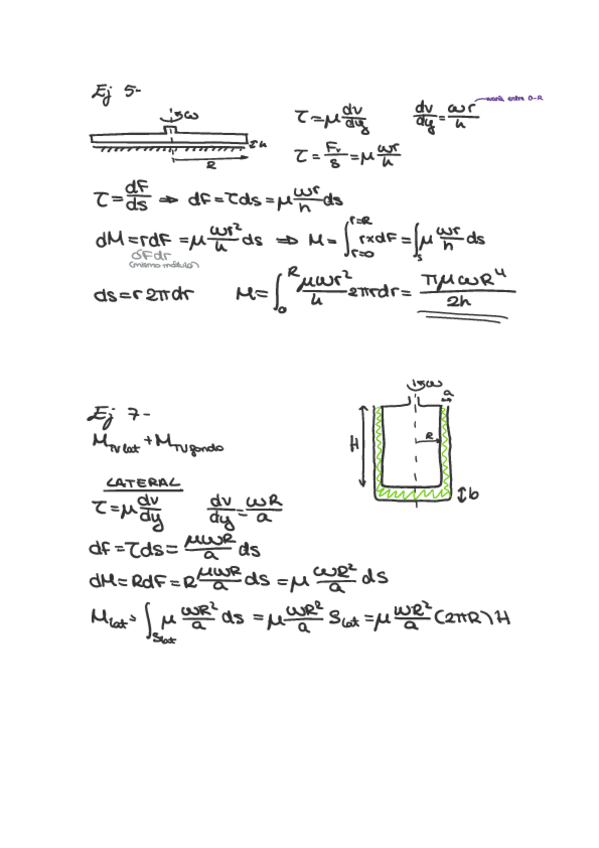 Ej 5-
ω
h
R
τ=μ dv/dy dv/dy = ωr/h varía entre 0-R
τ = Fv/S = μ ωr/h
τ = dF/ds ⇒ dF = τds = μ ωr/h ds
dM = rdF = μ ωr²/h ds ⇒ M = ∫_{r=0}^{r=R} r×dF = ∫_S μ ωr/h ds
(mismo módulo)
ds = r2πdr M = ∫_0^R μωr²/h 2πrdr = πμωR⁴/2h
Ej 7-
ω
a
R
H
b
M_{TV lat} + M_{TV fondo}
LATERAL
τ=μ dv/dy dv/dy = ωR/a
dF = τds = μωR/a ds
dM = RdF = R μωR/a ds = μ ωR²/a ds
M_{lat} = ∫_{Slat} μ ωR²/a ds = μ ωR²/a S_{lat} = μ ωR²/a (2πR)H